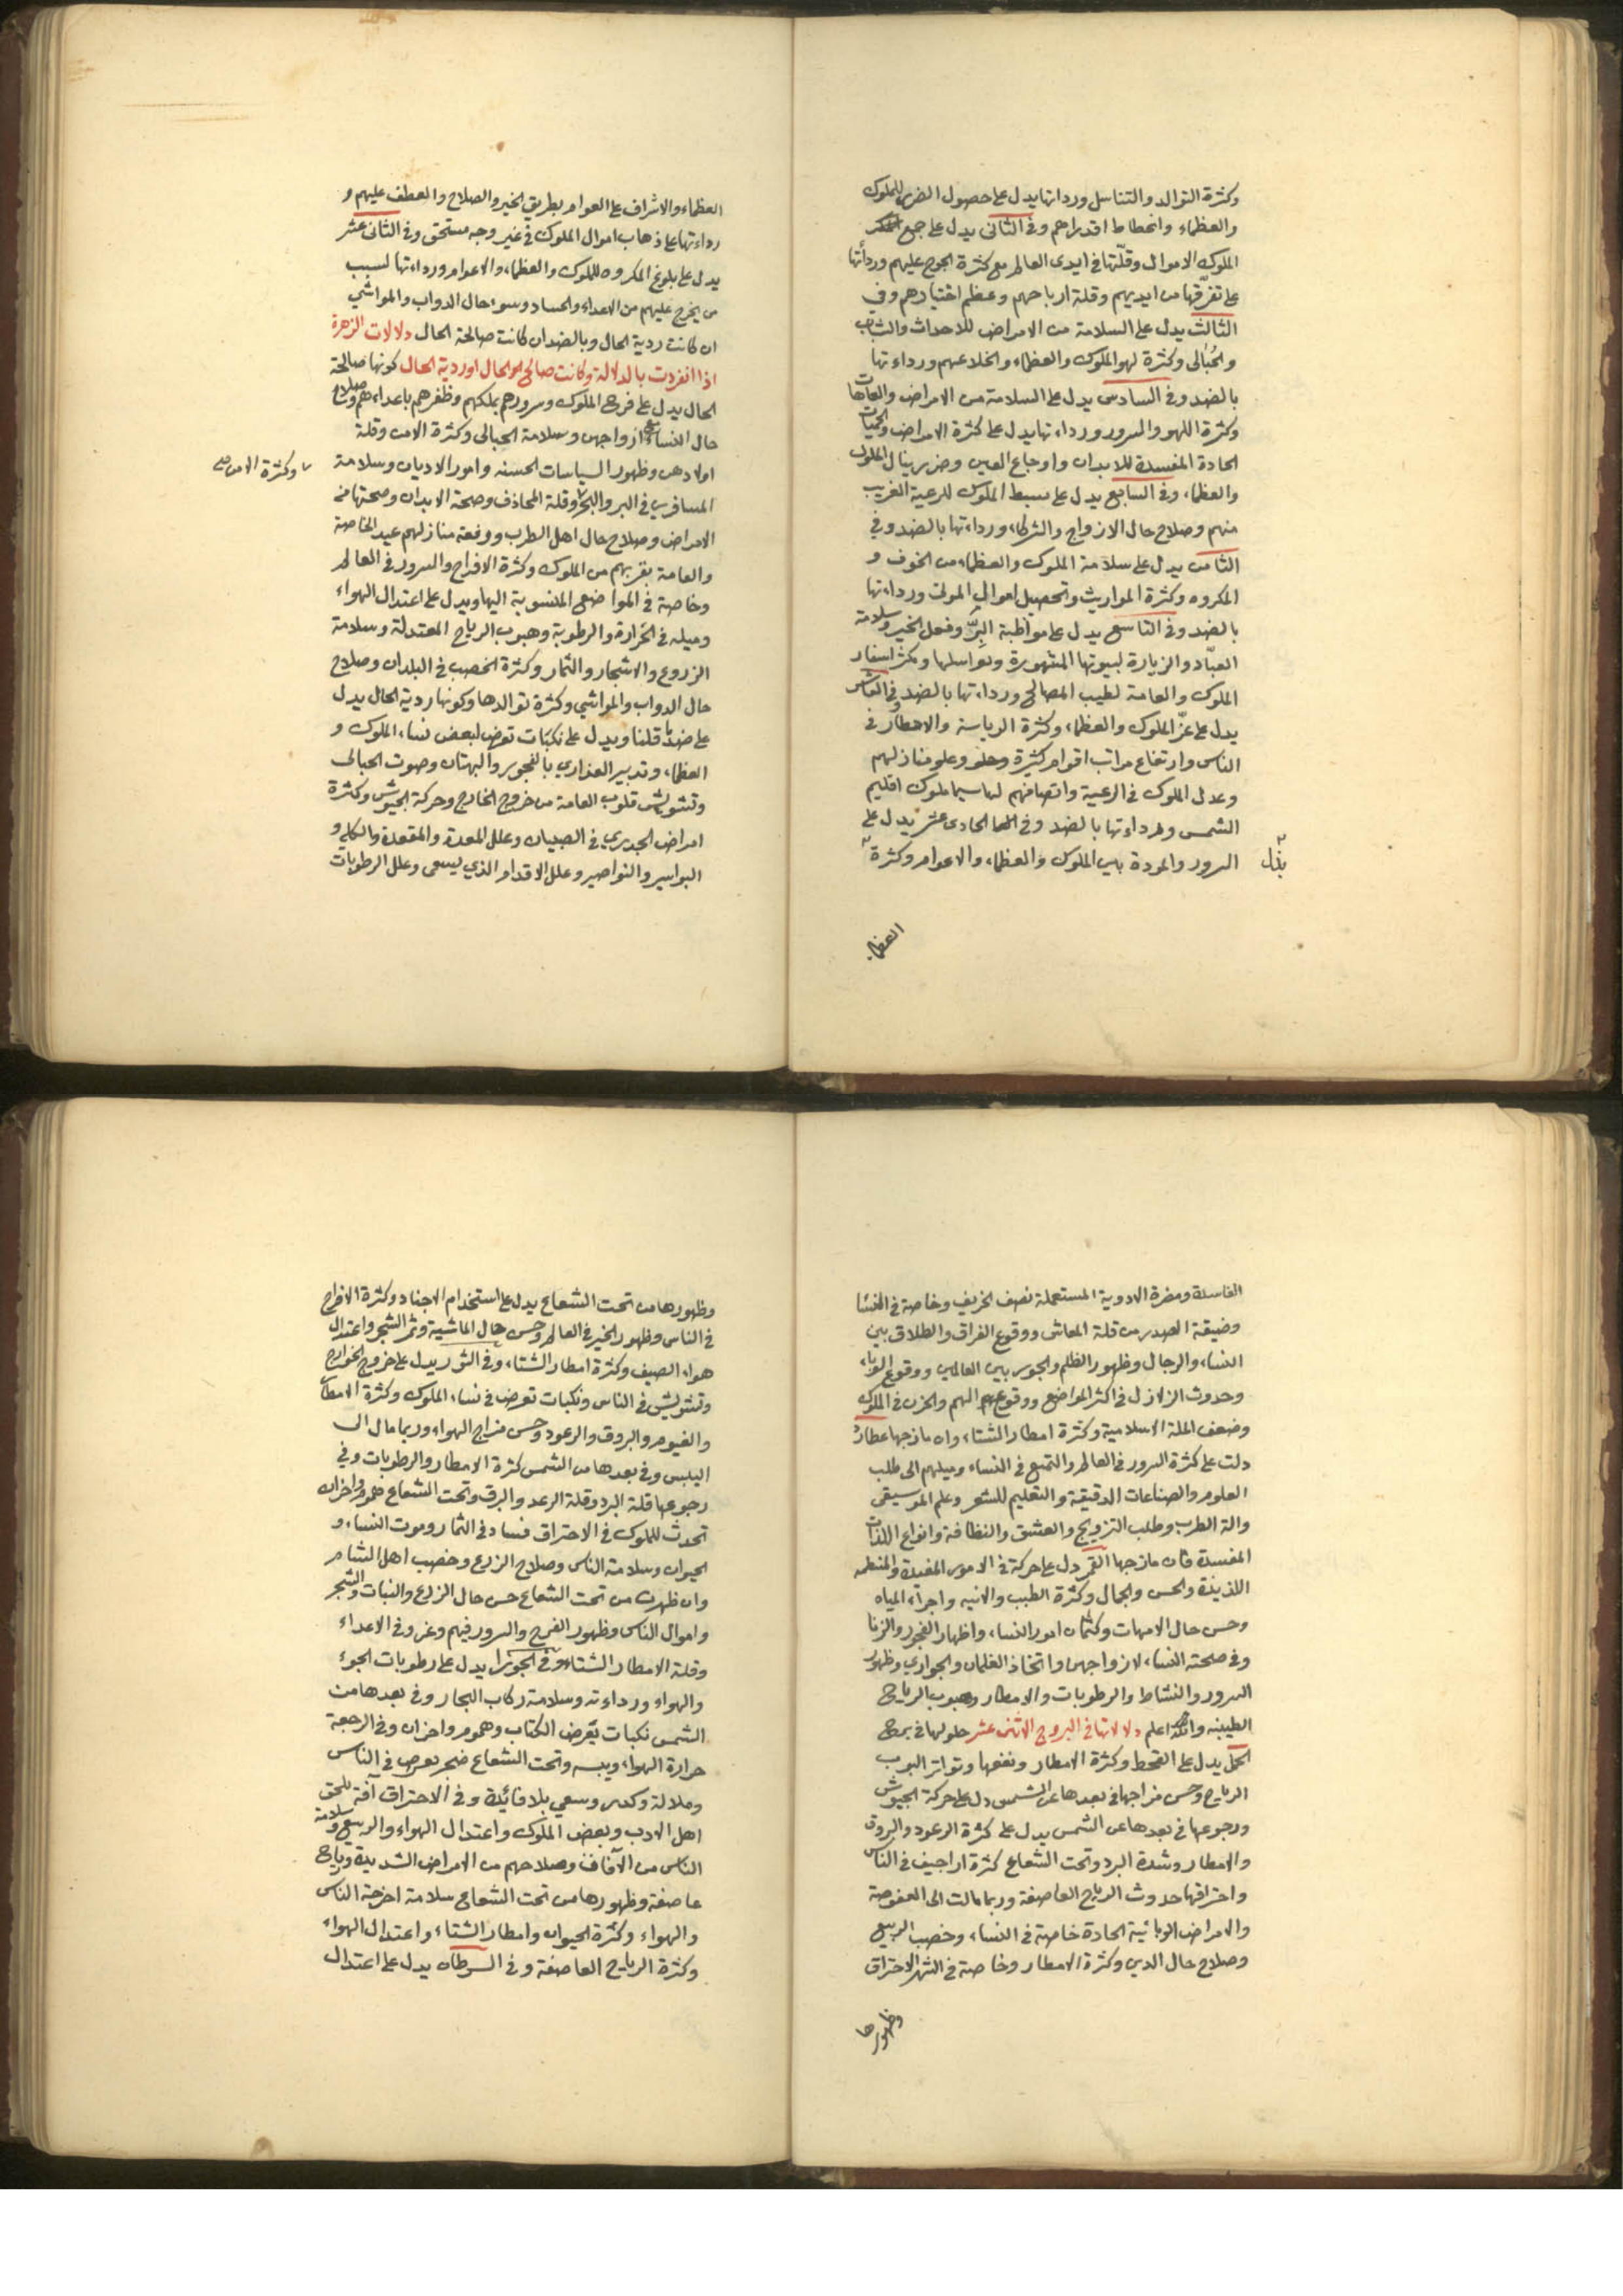 وكثرة التوالد والتناسل ورداتها يدل على حصول الضرر للملوك
والعظماء وانحطاط اقدارهم وفي الثاني يدل على جمع
الملوك الاموال وقلّتها في ايدى العالم مع كثرة الجرح عليهم ورداتها
على تفرّقها من ايديهم وقلة ارباحهم وعظم اختيارهم وفي
الثالث يدل على السلامة من الامراض للاحداث والشاب
والحُبالى وكثرة لهو الملوك والعظماء وانخلاعهم ورداءتها
بالضد وفي السادس يدل على السلامة من الامراض والعاهات
وكثرة اللهو والسرور ورداءتها يدل على كثرة الامراض والحميات
الحادة المفسدة للابدان واوجاع العين وضرر ينال الملوك
والعظماء وفي السابع يدل على بسط الملوك للرعية الغريب
منهم وصلاح حال الازواج والشركاء ورداءتها بالضد وفي
الثامن يدل على سلامة الملوك والعظماء من الخوف و
المكروه وكثرة المواريث وتحصيل اموال الموتى ورداءتها
بالضد وفي التاسع يدل على مواظبة البرّ وفعل الخير وسلامة
العبّاد والزيارة لبيوتها المشهورة وتواسلها وكثر اسفار
الملوك والعامة لطيب المصالح ورداءتها بالضد وفي العاشر
يدل على عزّ الملوك والعظماء وكثرة الرياسة والاخطار في
الناس وارتفاع مراتب اقوام كثيرة وعلو منازلهم
وعدل الملوك في الرعية وانصافهم لها سيما ملوك اقليم
الشمس ورداءتها بالضد وفي الحادي عشر يدل على
السرور والمودة بين الملوك والعظماء والاعوام وكثرة
بذل
العظماء
العظماء والاشراف على العوام بطريق الخير والصلاح والعطف عليهم و
رداءتها على ذهاب اموال الملوك في غير وجه مستحق وفي الثاني عشر
يدل على بلوغ المكروه للملوك والعظماء والاعوام ورداءتها لسبب
من يخرج عليهم من الاعداء والحساد وسوء حال الدواب والمواشي
ان كانت ردية الحال وبالضد ان كانت صالحة الحال دلالات الزهرة
اذا انفردت بالدلالة وكانت صالحة الحال او ردية الحال كونها صالحة
الحال يدل على فرح الملوك وسرورهم بملكهم وظفرهم باعداءهم وصلاح
حال النساء مع ازواجهن وسلامة الحبالى وكثرة الامن وقلة
اولادهن وظهور السياسات الحسنه وامور الاديان وسلامة
وكثرة الامن صح
المسافرين في البر والبحر وقلة المحاذف وصحة الابدان وصحتها من
الامراض وصلاح حال اهل الطرب ورفعة منازلهم عند الخاصة
والعامة بقربهم من الملوك وكثرة الافراح والسرور في العالم
وخاصة في المواضع المنسوبة اليها ويدل على اعتدال الهواء
وميله في الحرارة والرطوبة وهبوب الرياح المعتدلة وسلامة
الزروع والاشجار والثمار وكثرة الخصب في البلدان وصلاح
حال الدواب والمواشي وكثرة توالدها وكونها ردية الحال يدل
على ضد ما قلنا ويدل على نكبات تعرض لبعض نساء الملوك و
العظماء وتدبير العذاري بالفجور والبهتان وصوت الحبالى
وتشويش قلوب العامة من خروج الخارج وحركة الجيوش وكثرة
امراض الجدري في الصبيان وعلل المعدة والمقعدة والكلى و
البواسير والنواصير وعلل الاقدام الذي يسمى وعلل الرطوبات
الفاسدة ومضرة الادوية المستعملة نصف الخريف وخاصة في النساء
وضيقة الصدر من قلة المعاش ووقوع الفراق والطلاق بين
النساء والرجال وظهور الظلم والجور بين العالمين ووقوع الوباء
وحدوث الزلازل في اكثر المواضع ووقوع الهم والحزن في الملوك
وضعف الملة الاسلامية وكثرة امطار الشتاء وان مازجها عطارد
دلت على كثرة السرور في العالم والتمتع في النساء وميلهم الى طلب
العلوم والصناعات الدقيقة والتعليم للشعر وعلم الموسيقى
والة الطرب وطلب التزويج والعشق والنظافة وانواع اللذات
المفسدة فان مازجها القمر دل على حركة في الامور المفيدة والمنطمه
اللذيذة والحسن والجمال وكثرة الطيب والانيه واجراء المياه
وحسن حال الامهات وكتمان امور النساء واظهار الفجور والزنا
وفي صلحته النساء لازواجهن واتخاذ الغلمان والجواري وظهور
السرور والنشاط والرطوبات والامطار وهبوب الرياح
الطيبه والله اعلم دلالاتها في البروج الاثنى عشر حلولها في برج
الحمل يدل على القحط وكثرة الامطار ونفعها وتواتر البوب
الرياح وحسن مزاجها في بعدها عن الشمس دل على حركة الجيوش
ورجوعها في بعدها عن الشمس يدل على كثرة الرعود والبروق
والامطار وشدة البرد وتحت الشعاع كثرة اراجيف في الناس
واحتراقها حدوث الرياح العاصفة وربما مالت الى العفوصة
والامراض الوبائية الحادة خاصة في النساء وخصب الربيع
وصلاح حال الدين وكثرة الامطار وخاصة في الشهر الاحتراق
وظهورها
وظهورها من تحت الشعاع يدل على استخدام الاجناد وكثرة الافراح
في الناس وظهور الخير في العالم وحسن حال الماشية وثمر الشجر واعتدال
هواء الصيف وكثرة امطار الشتاء وفي الثور يدل على خروج الخوارج
وتشويش في الناس ونكبات تعرض في نساء الملوك وكثرة الامطار
والغيوم والبروق والرعود وحسن مزاج الهواء وربما مال الى
اليبس وفي بعدها من الشمس كثرة الامطار والرطوبات وفي
رجوعها قلة البرد وقلة الرعد والبرق وتحت الشعاع هموم واحزان
تحدث للملوك في الاحتراق فساد في الثمار وموت النساء و
الحيوان وسلامة الناس وصلاح الزرع وخصب اهل الشام
وان ظهرت من تحت الشعاع حسن حال الزرع والنبات والشجر
واموال الناس وظهور الفرح والسرور فيهم وغزو في الاعداء
وقلة الامطار الشتاء وفي الجوزا يدل على رطوبات الجوء
والهواء ورداءته وسلامة ركاب البحار وفي بعدها من
الشمس نكبات يعرض الكتاب وهموم واحزان وفي الرجعة
حرارة الهواء ويبسه وتحت الشعاع ضجر يعرض في الناس
وملالة وكدر وسعي بلا فائدة وفي الاحتراق آفة تلحق
اهل الادب وبعض الملوك واعتدال الهواء والربيع وسلامة
الناس من الآفات وصلاحهم من الامراض الشديدة ورياح
عاصفة وظهورها من تحت الشعاع سلامة امزجة الناس
والهواء وكثرة الحيوان وامطار الشتاء واعتدال الهواء
وكثرة الرياح العاصفة وفي السرطان يدل على اعتدال